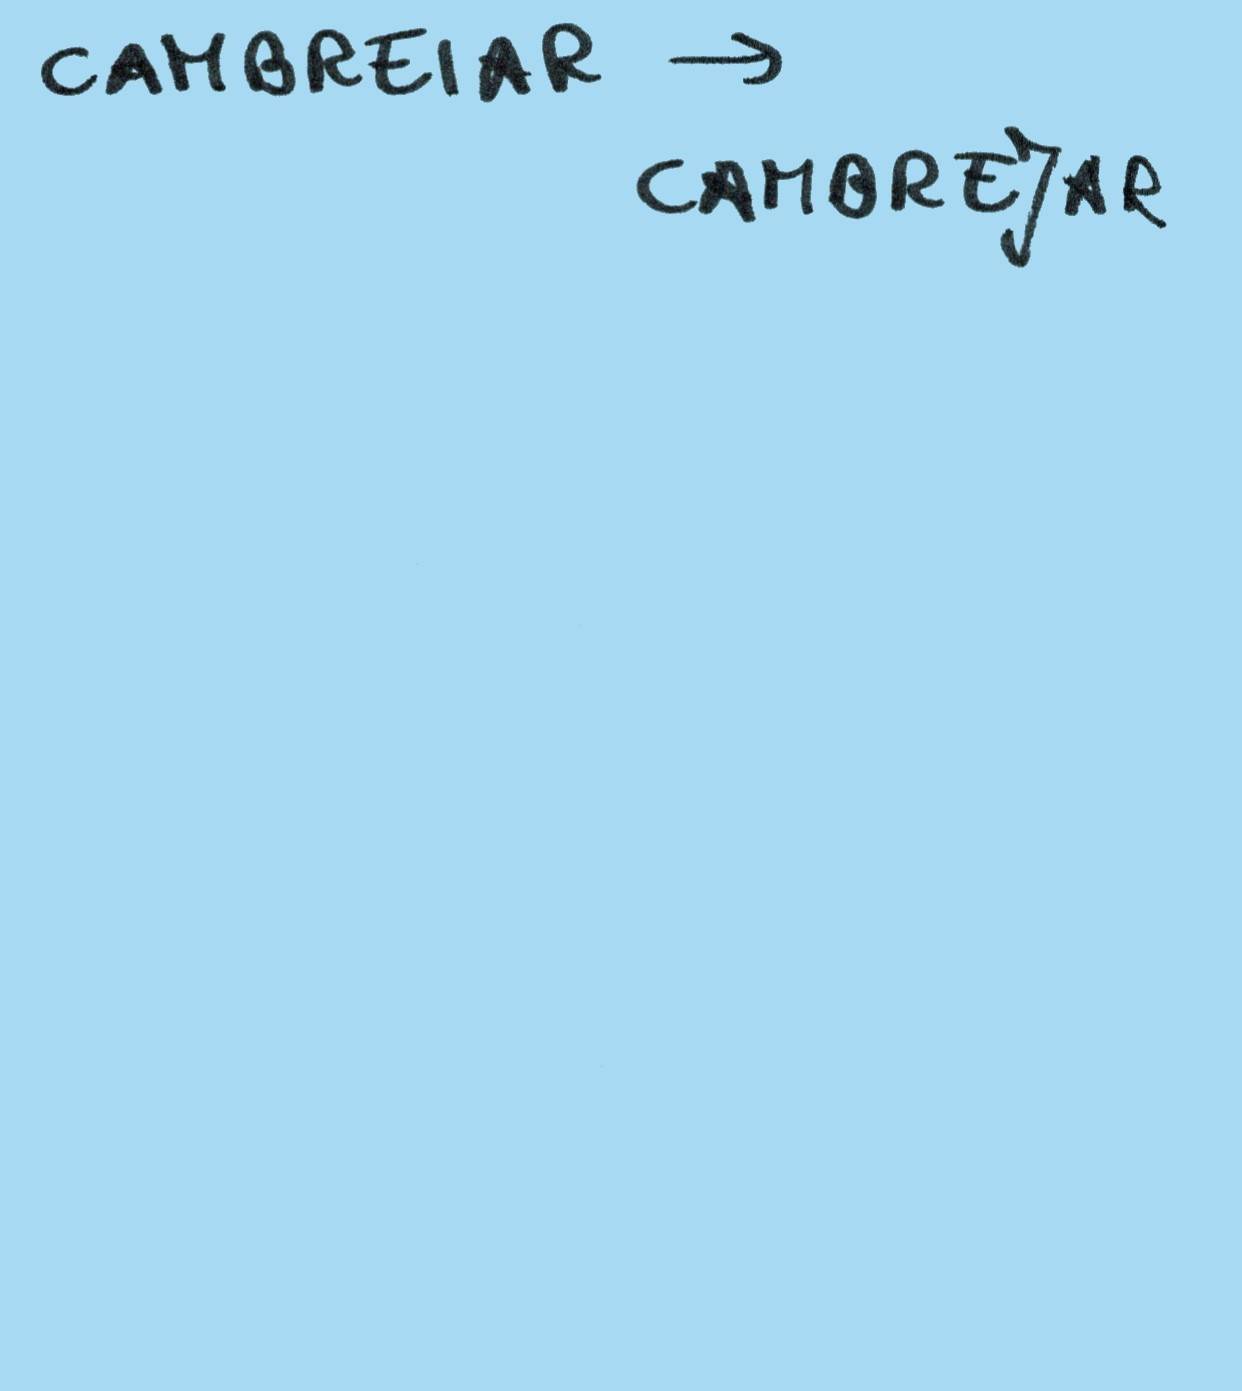 CAMBREIAR →
CAMBREJAR